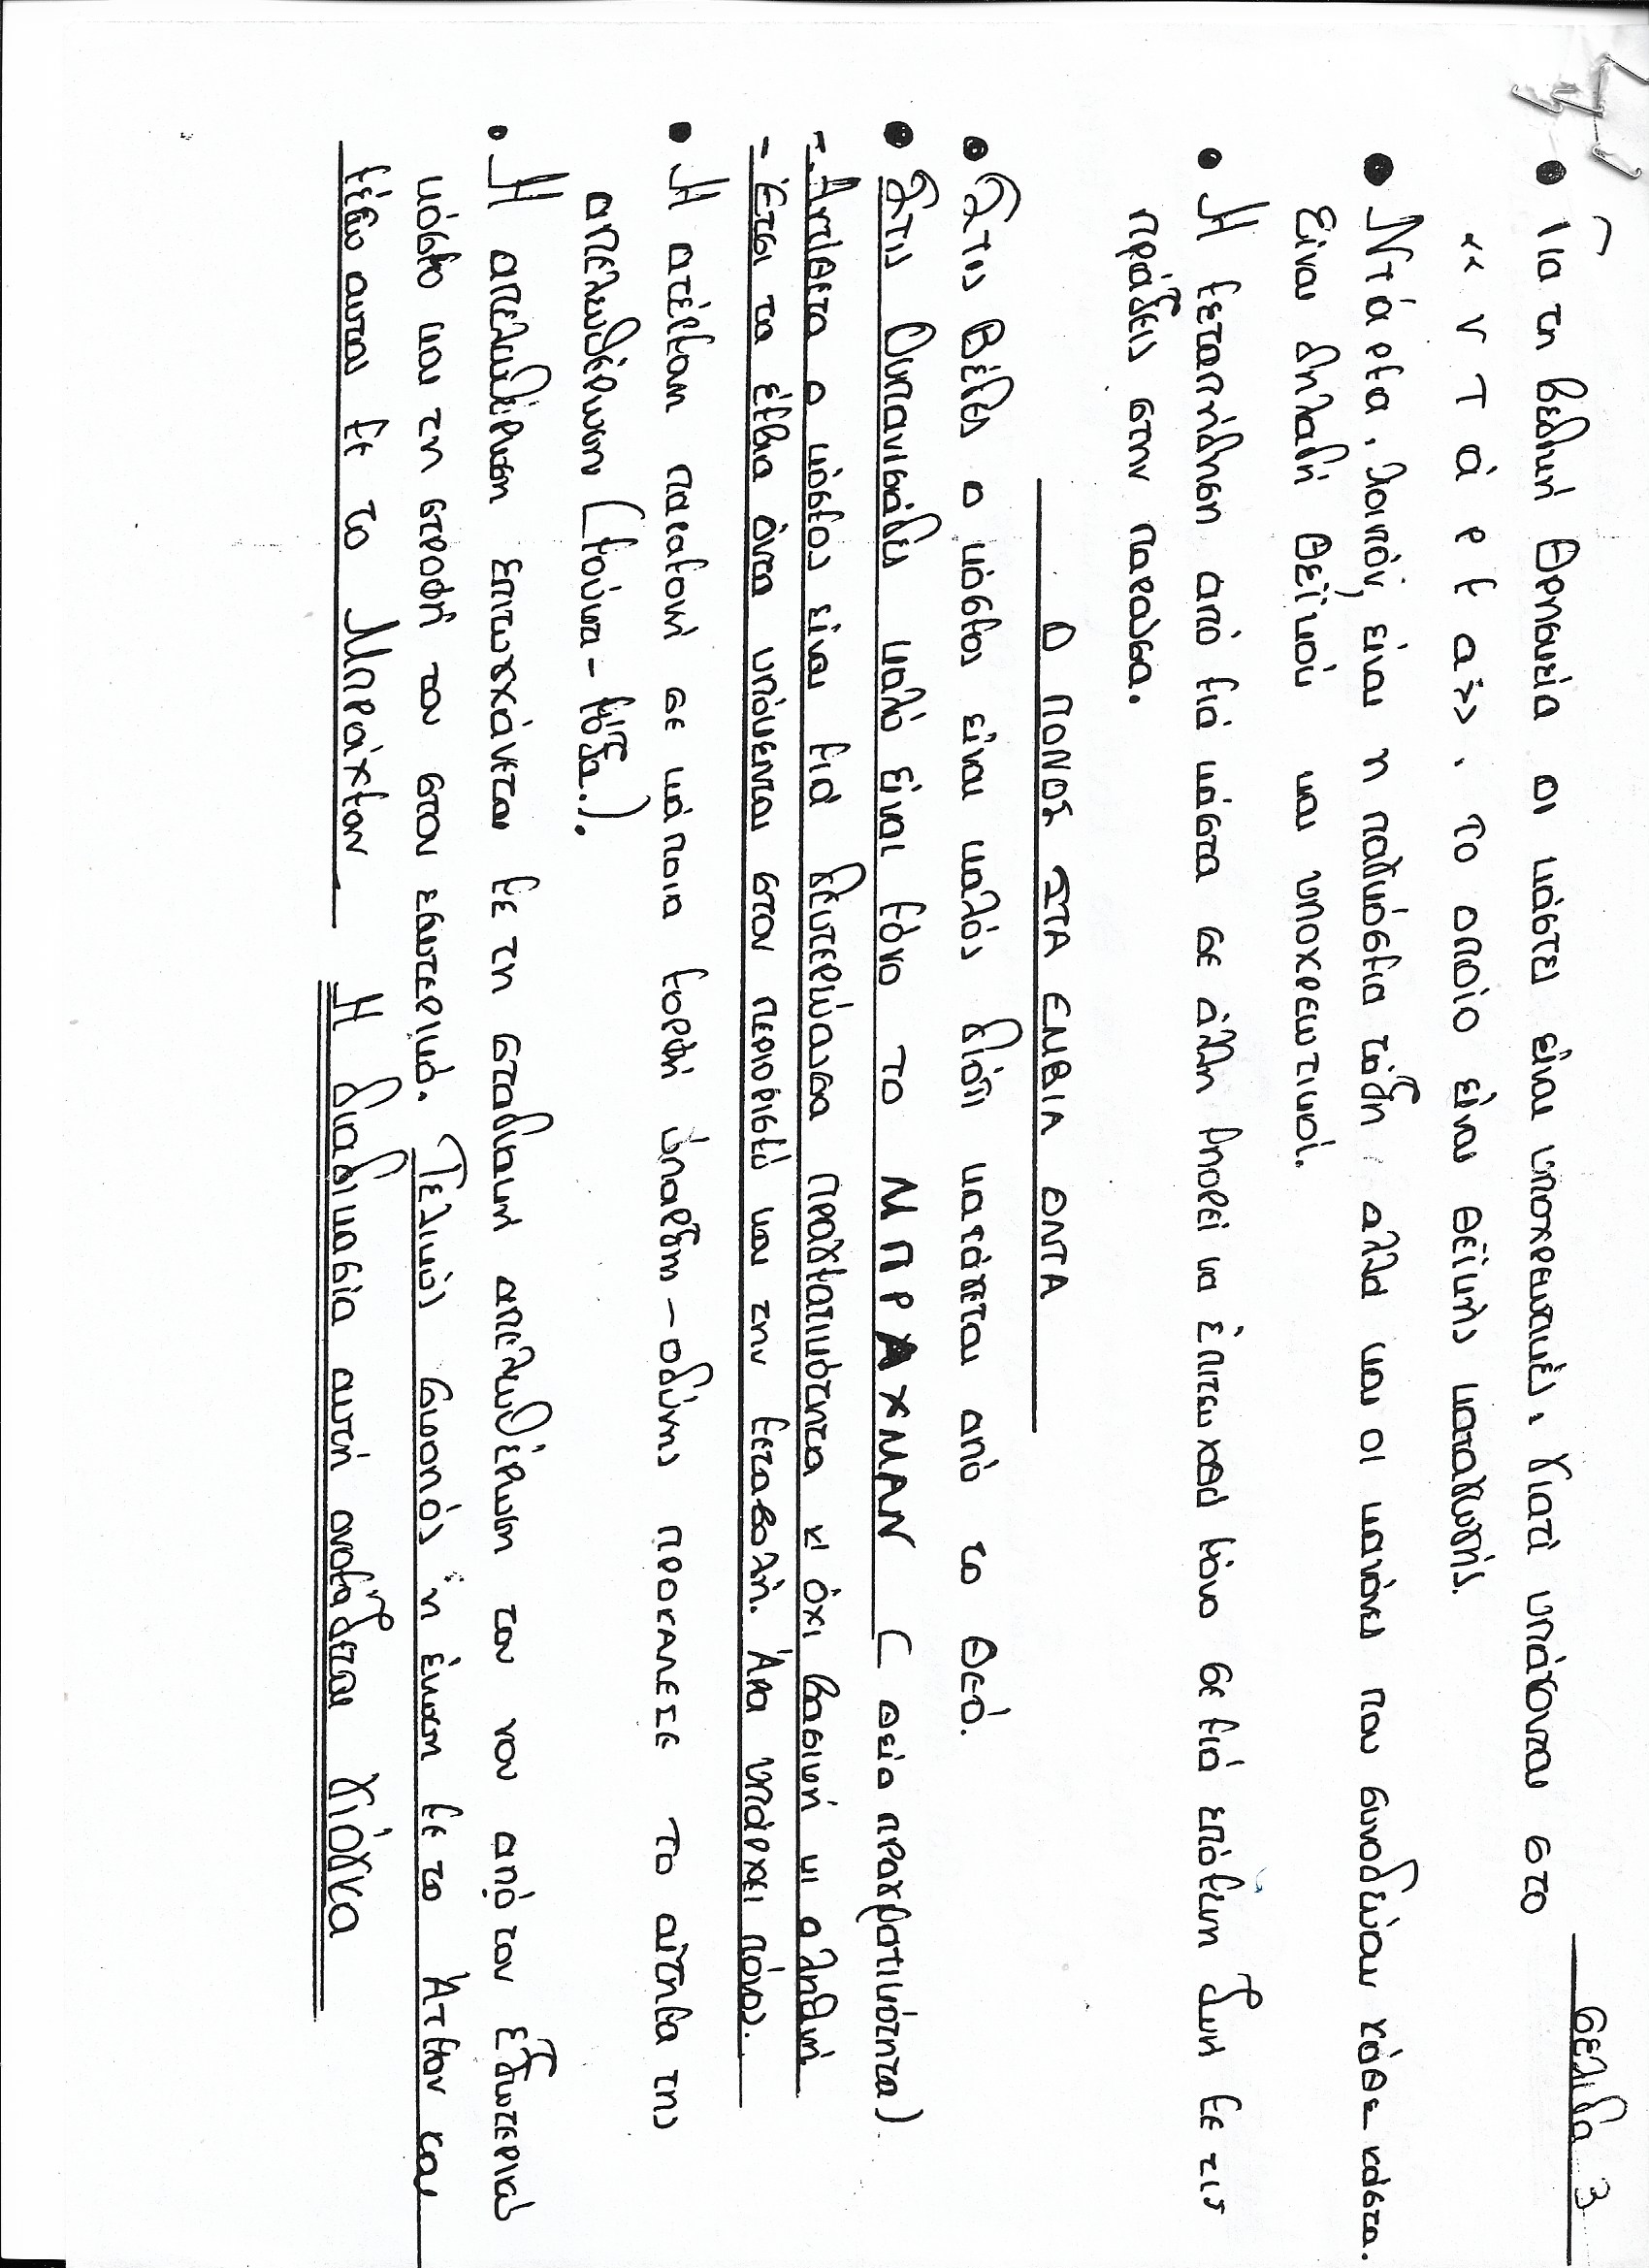 σελίδα 3
• Για τη βεδική θρησκεία οι κάστες είναι υποχρεωτικές, γιατί υπάγονται στο
«ντάρμα», το οποίο είναι θεϊκής καταγωγής.
• Ντάρμα, λοιπόν, είναι η παγκόσμια τάξη αλλά και οι κανόνες που συνοδεύουν κάθε κάστα.
Είναι δηλαδή θεϊκοί και υποχρεωτικοί.
• Η μεταπήδηση από μιά κάστα σε άλλη μπορεί να επιτευχθεί μόνο σε μιά επόμενη ζωή με τις
πράξεις στην παρούσα.
Ο ΠΟΝΟΣ ΣΤΑ ΕΜΒΙΑ ΟΝΤΑ
• Στις Βέδες ο κόσμος είναι καλός διότι κατάγεται από το θεό.
• Στις Ουπανισάδες καλό είναι μόνο το ΜΠΡΑΧΜΑΝ (θεία πραγματικότητα)
- Αντίθετα ο κόσμος είναι μιά δευτερεύουσα πραγματικότητα κι όχι βασική κι αληθινή
- Έτσι τα έμβια όντα υπόκεινται στον περιορισμό και την μεταβολή. Άρα υπάρχει πόνος.
• Η ατέρμονη παραμονή σε κάποια μορφή ύπαρξη-οδύνης προκάλεσε το αίτημα της
απελευθέρωση (μούκτι-μόξα).
• Η απελευθέρωση επιτυγχάνεται με τη σταδιακή απελευθέρωση του νου από τον εξωτερικό
κόσμο και τη στροφή του στον εσωτερικό. Τελικός σκοπός η ένωση με το Άτμαν και
μέσω αυτού με το Μπράχμαν Η διαδικασία αυτή ονομάζεται γιόγκα